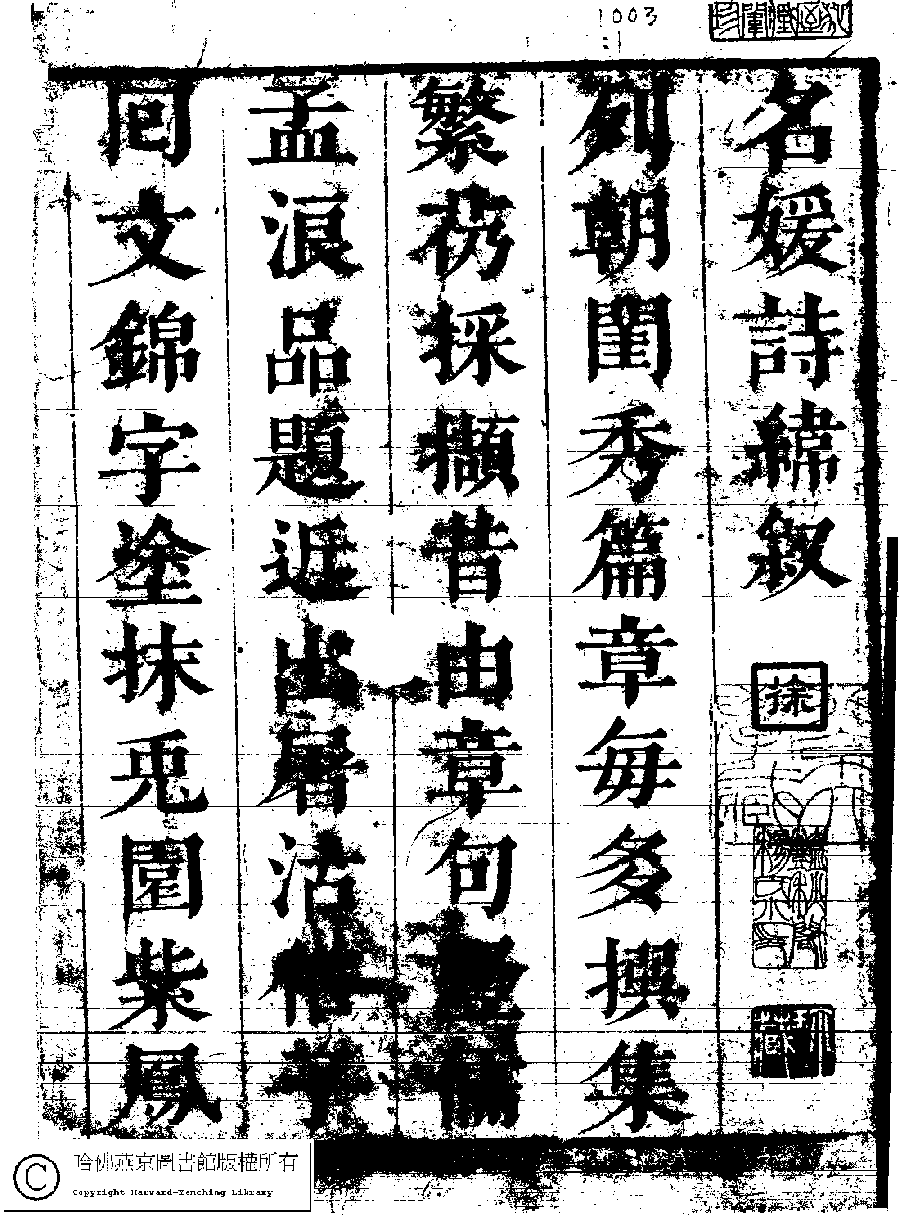 1003
名媛詩緯叙
徐
列朝閨秀篇章每多撰集
繁採擷昔由章句儒
孟浪品題近出屠沽子
囘文錦字塗抹兎園紫鳳
哈佛燕京圖書館版權所有
Copyright Harvard-Yenching Library